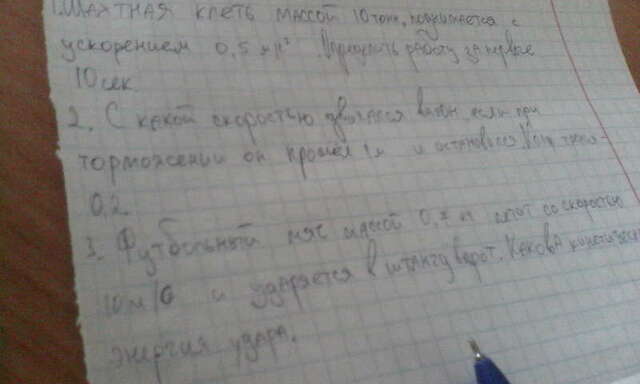 1. ШАХТНАЯ клеть массой 10 тонн, поднимается с
ускорением 0,5 м/с² Определить работу за первые
10 сек.
2. С какой скоростью двигался вагон если при
торможении он прошёл 1м и остановился
0,2
3. Футбольный мяч массой 0,7 кг летит со скоростью
10 м/с и ударяется в штангу ворот. Какова кинетическая
энергия удара.